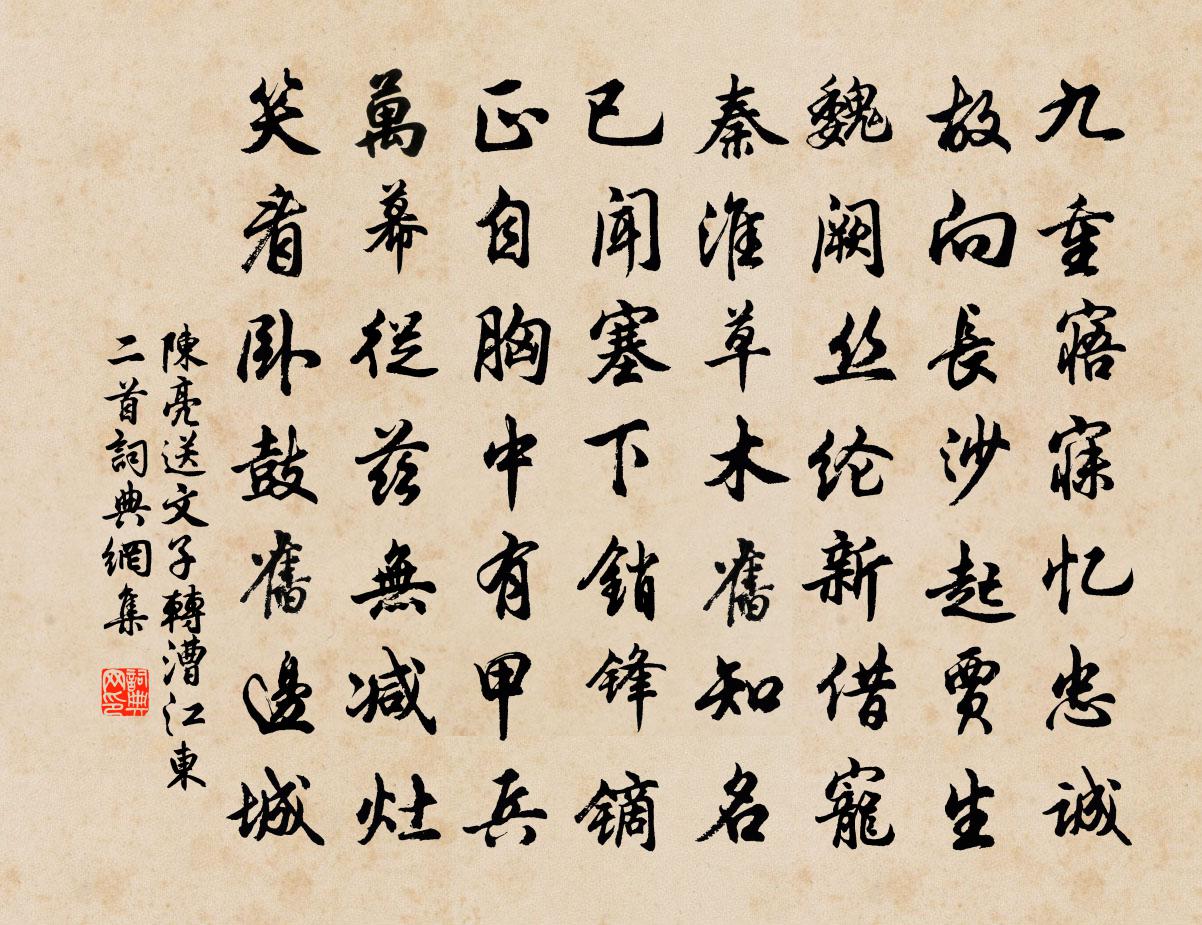 九重寤寐忆忠诚
故向長沙起賈生
魏阙丝纶新借寵
秦淮草木舊知名
已聞塞下銷锋镝
正自胸中有甲兵
萬幕從兹無减灶
笑看卧鼓舊邊城
陳亮送文子轉漕江東
二首詞典網集
詞典网印